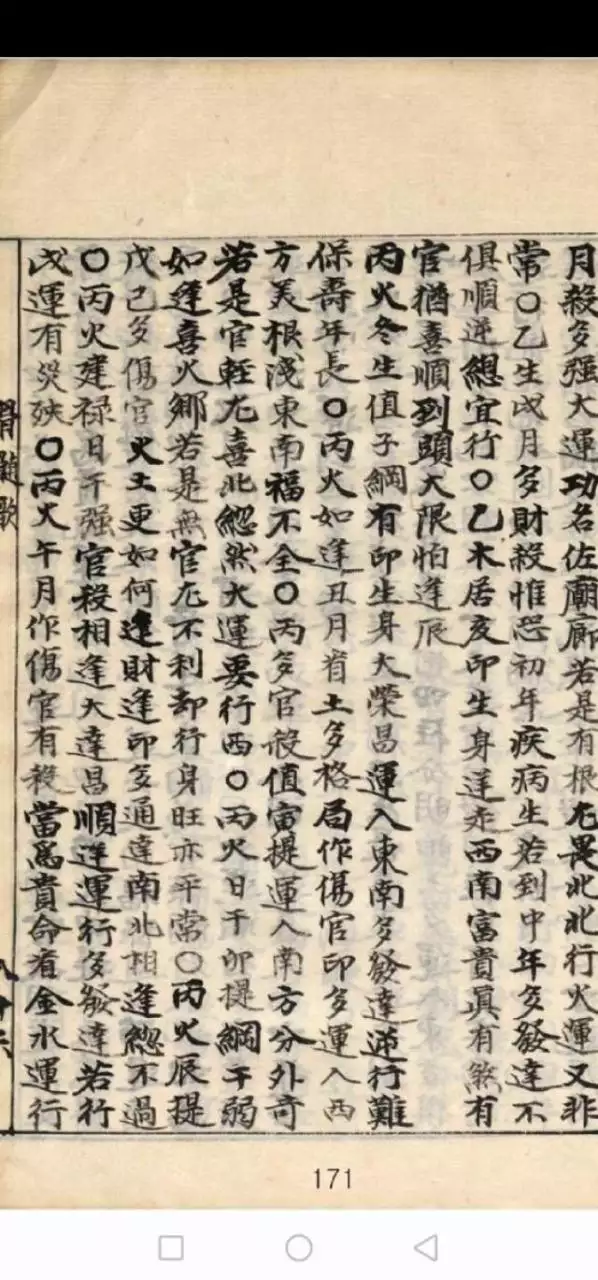 月殺多强大運功名佐廟廊若是有根尤畏北北行火運又非
常〇乙生戌月多財殺惟恐初年疾病生若到中年多發達不
俱順逆總宜行〇乙木居亥印生身運走西南富貴真有煞有
官猶喜順到頭大限怕逢辰
丙火冬生值子綱有印生身大榮昌運入東南多發達逆行難
保壽年長〇丙火如逢丑月省土多格局作傷官印多運入西
方美根淺東南福不全〇丙多官殺值寅提運入南方分外奇
若是官輕尤喜北總然大運要行西〇丙火日干卯提綱干弱
如逢喜火鄉若是無官尤不利却行身旺亦平常〇丙火辰提
戊己多傷官火土更如何逢財逢印多通達南北相逢總不過
〇丙火建禄日干强官殺相逢大達昌順逆運行多發達若行
戌運有災殃〇丙火午月作傷官有殺當爲貴命看金水運行
骨髓歌
171